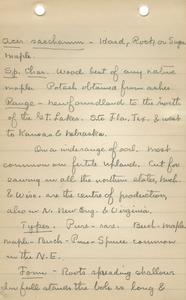 Acer saccharum - Hard, Rock, or Sugar
maple.
Sp. Char. Wood best of any native
maple. Potash obtained from ashes.
Range - newfoundland to the north
of the Gt. Lakes. S to Fla., Tex., & west
to Kansas & Nebraska.
On a wide range of soil. Most
common on fertile upland. Cut for
sawing in all the northern states, Mich.
& Wisc. are the centre of production,
also in N. New Eng. & Virginia.
Types. Pure - rare. Beech - Maple
Maple - Birch - Pine - Spruce common
in the N.E.
Form - Roots spreading shallow.
In full stands the bole is long &